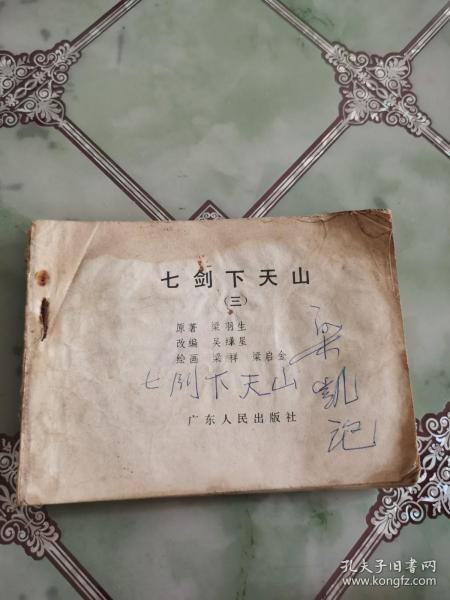 七剑下天山
(三)
原著 梁羽生
改编 吴绿星
绘画 梁祥 梁启金
七剑下天山
广东人民出版社
梁凯记
孔夫子旧书网
www.kongfz.com